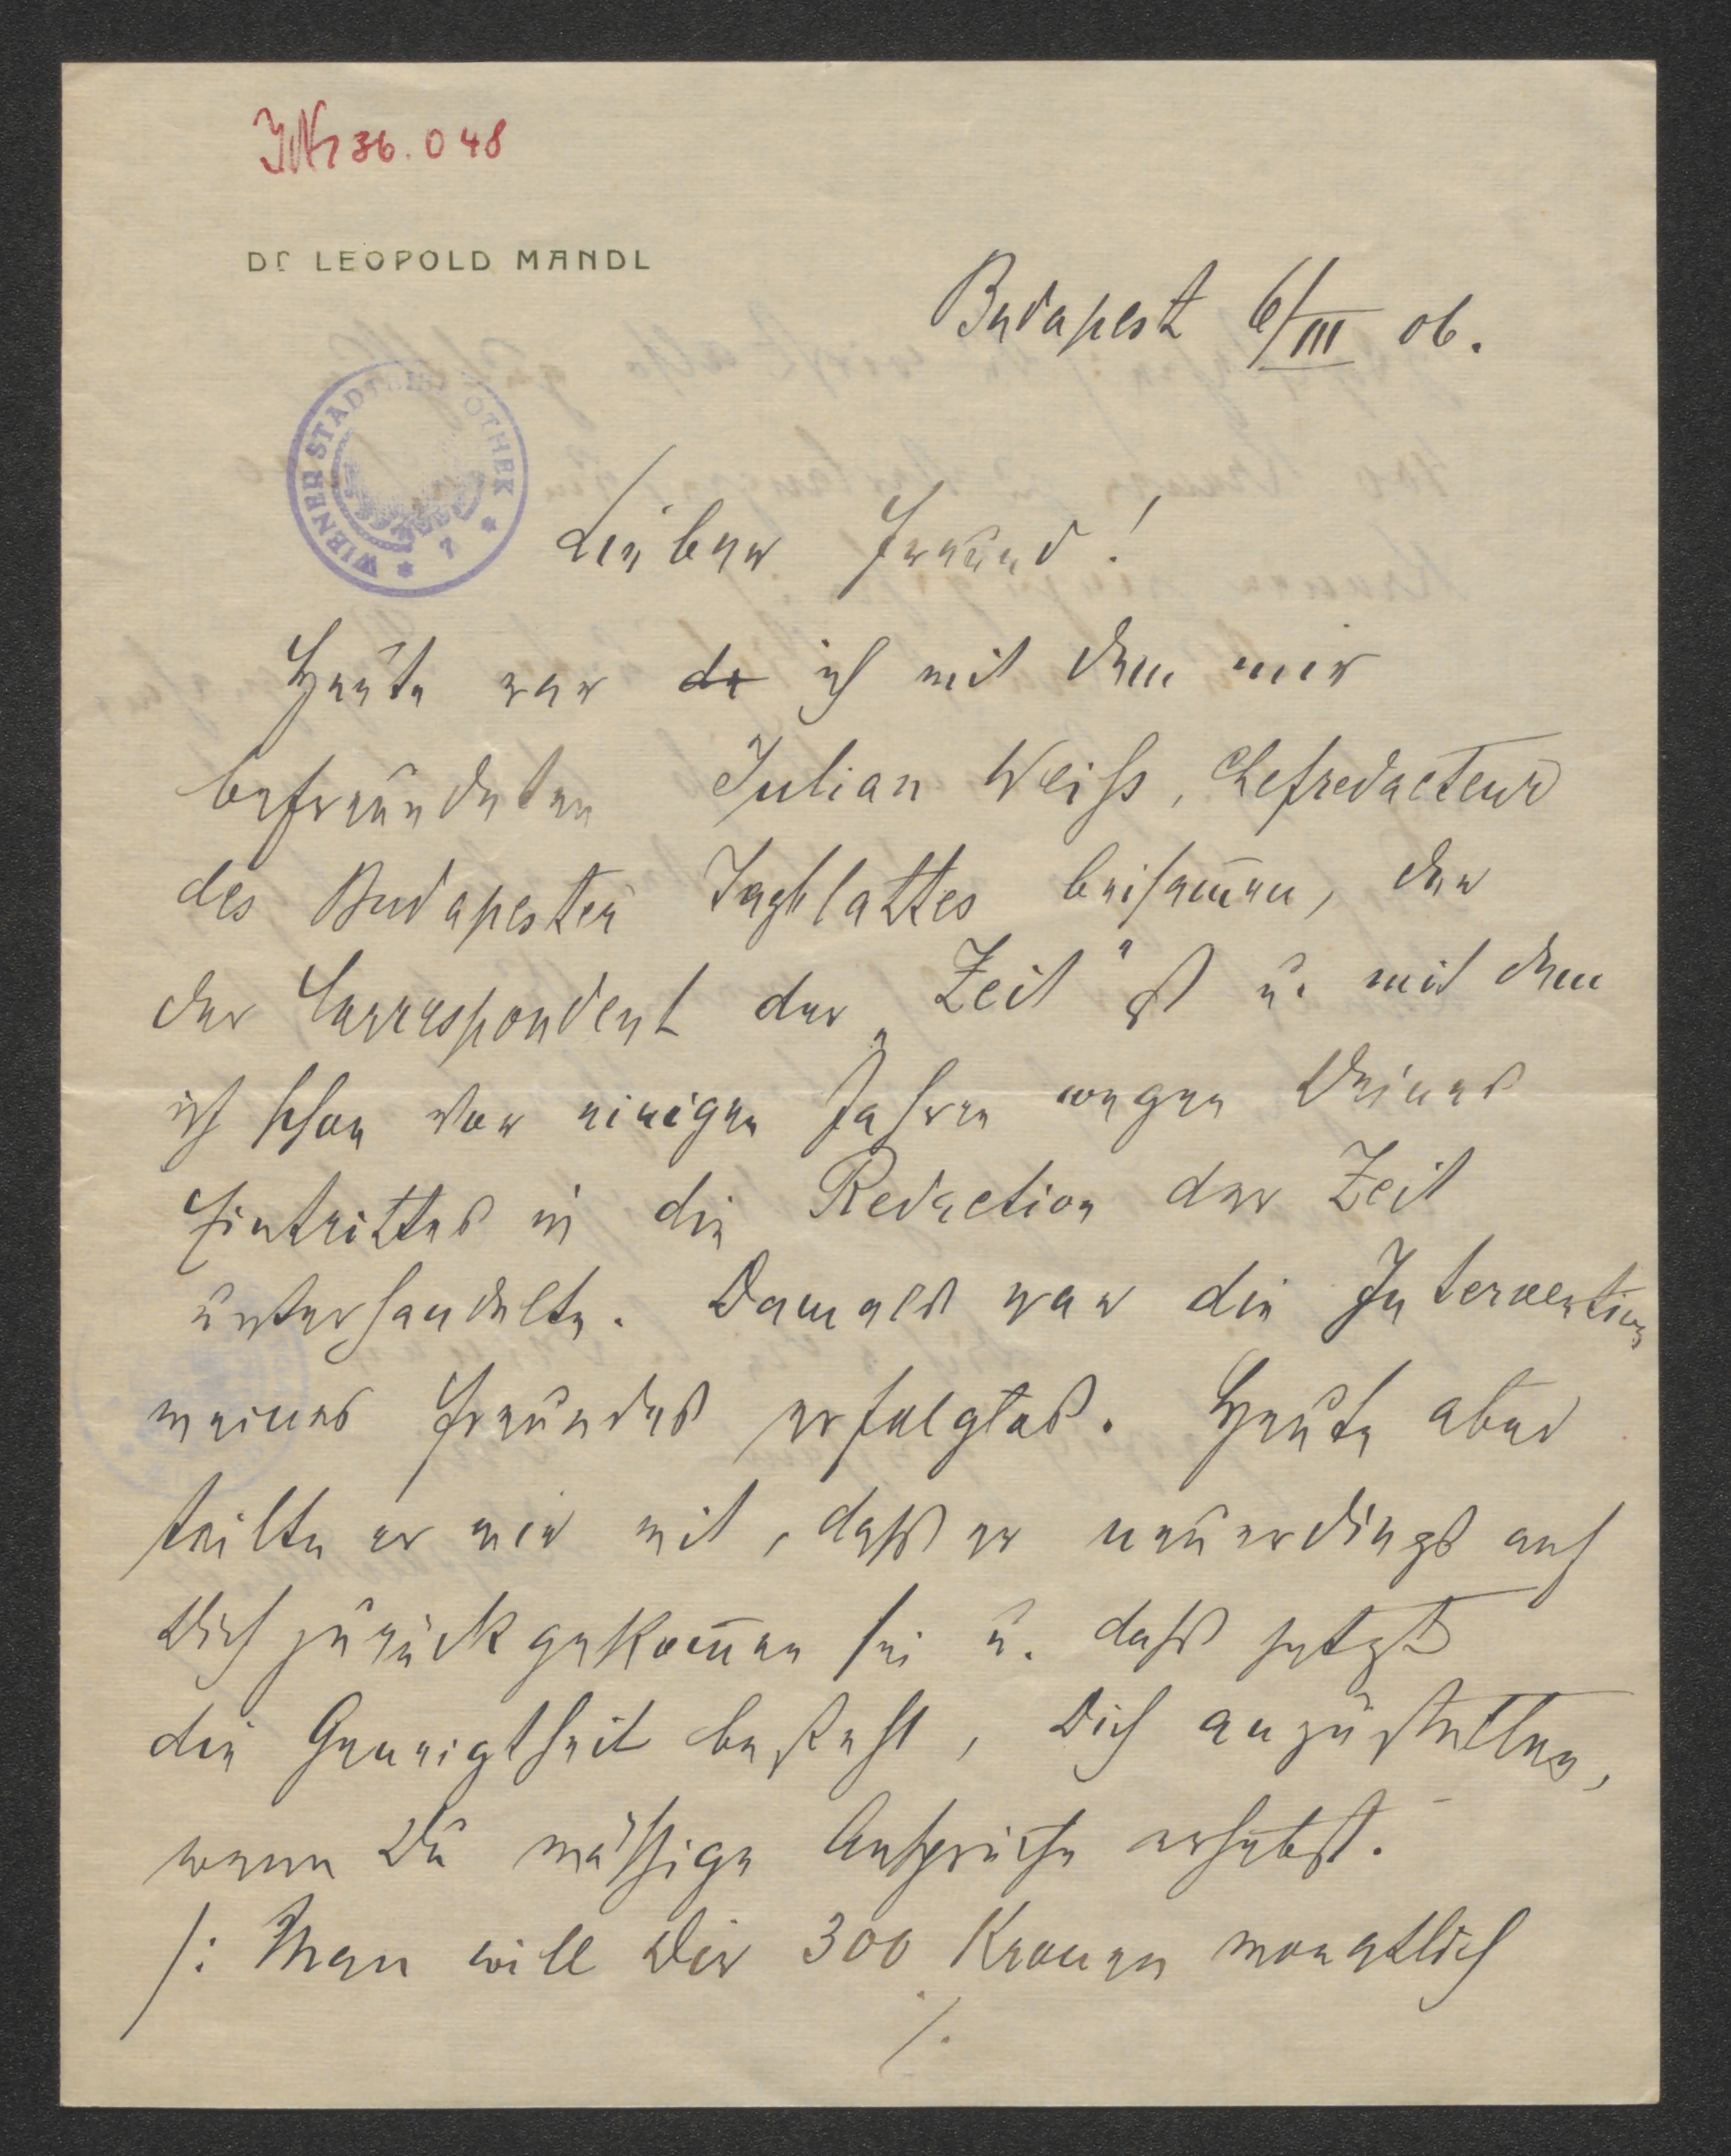 INr 36.048
Dr LEOPOLD MANDL
Budapest 6/III 06.
WIENER STADTBIBLIOTHEK * 7 *
Lieber Freund!
Heute war da ich mit dem mir
befreundeten Julian Weiss, Chefredacteur
des Budapester Tagblattes beisam̄en, der
der Correspondent der „Zeit“ ist u. mit dem
ich schon vor einigen Jahren wegen Deines
Eintrittes in die Redaction der Zeit
unterhandelte. Damals war die Intervention
meines Freundes erfolglos. Heute aber
teilte er mir mit, dass er neuerdings auf
Dich zurückgekom̄en sei u. dass jetzt
die Geneigtheit besteht, Dich anzustellen,
wenn Du mässige Ansprüche erhebst.
/: Man will Dir 300 Kronen monatlich
./.